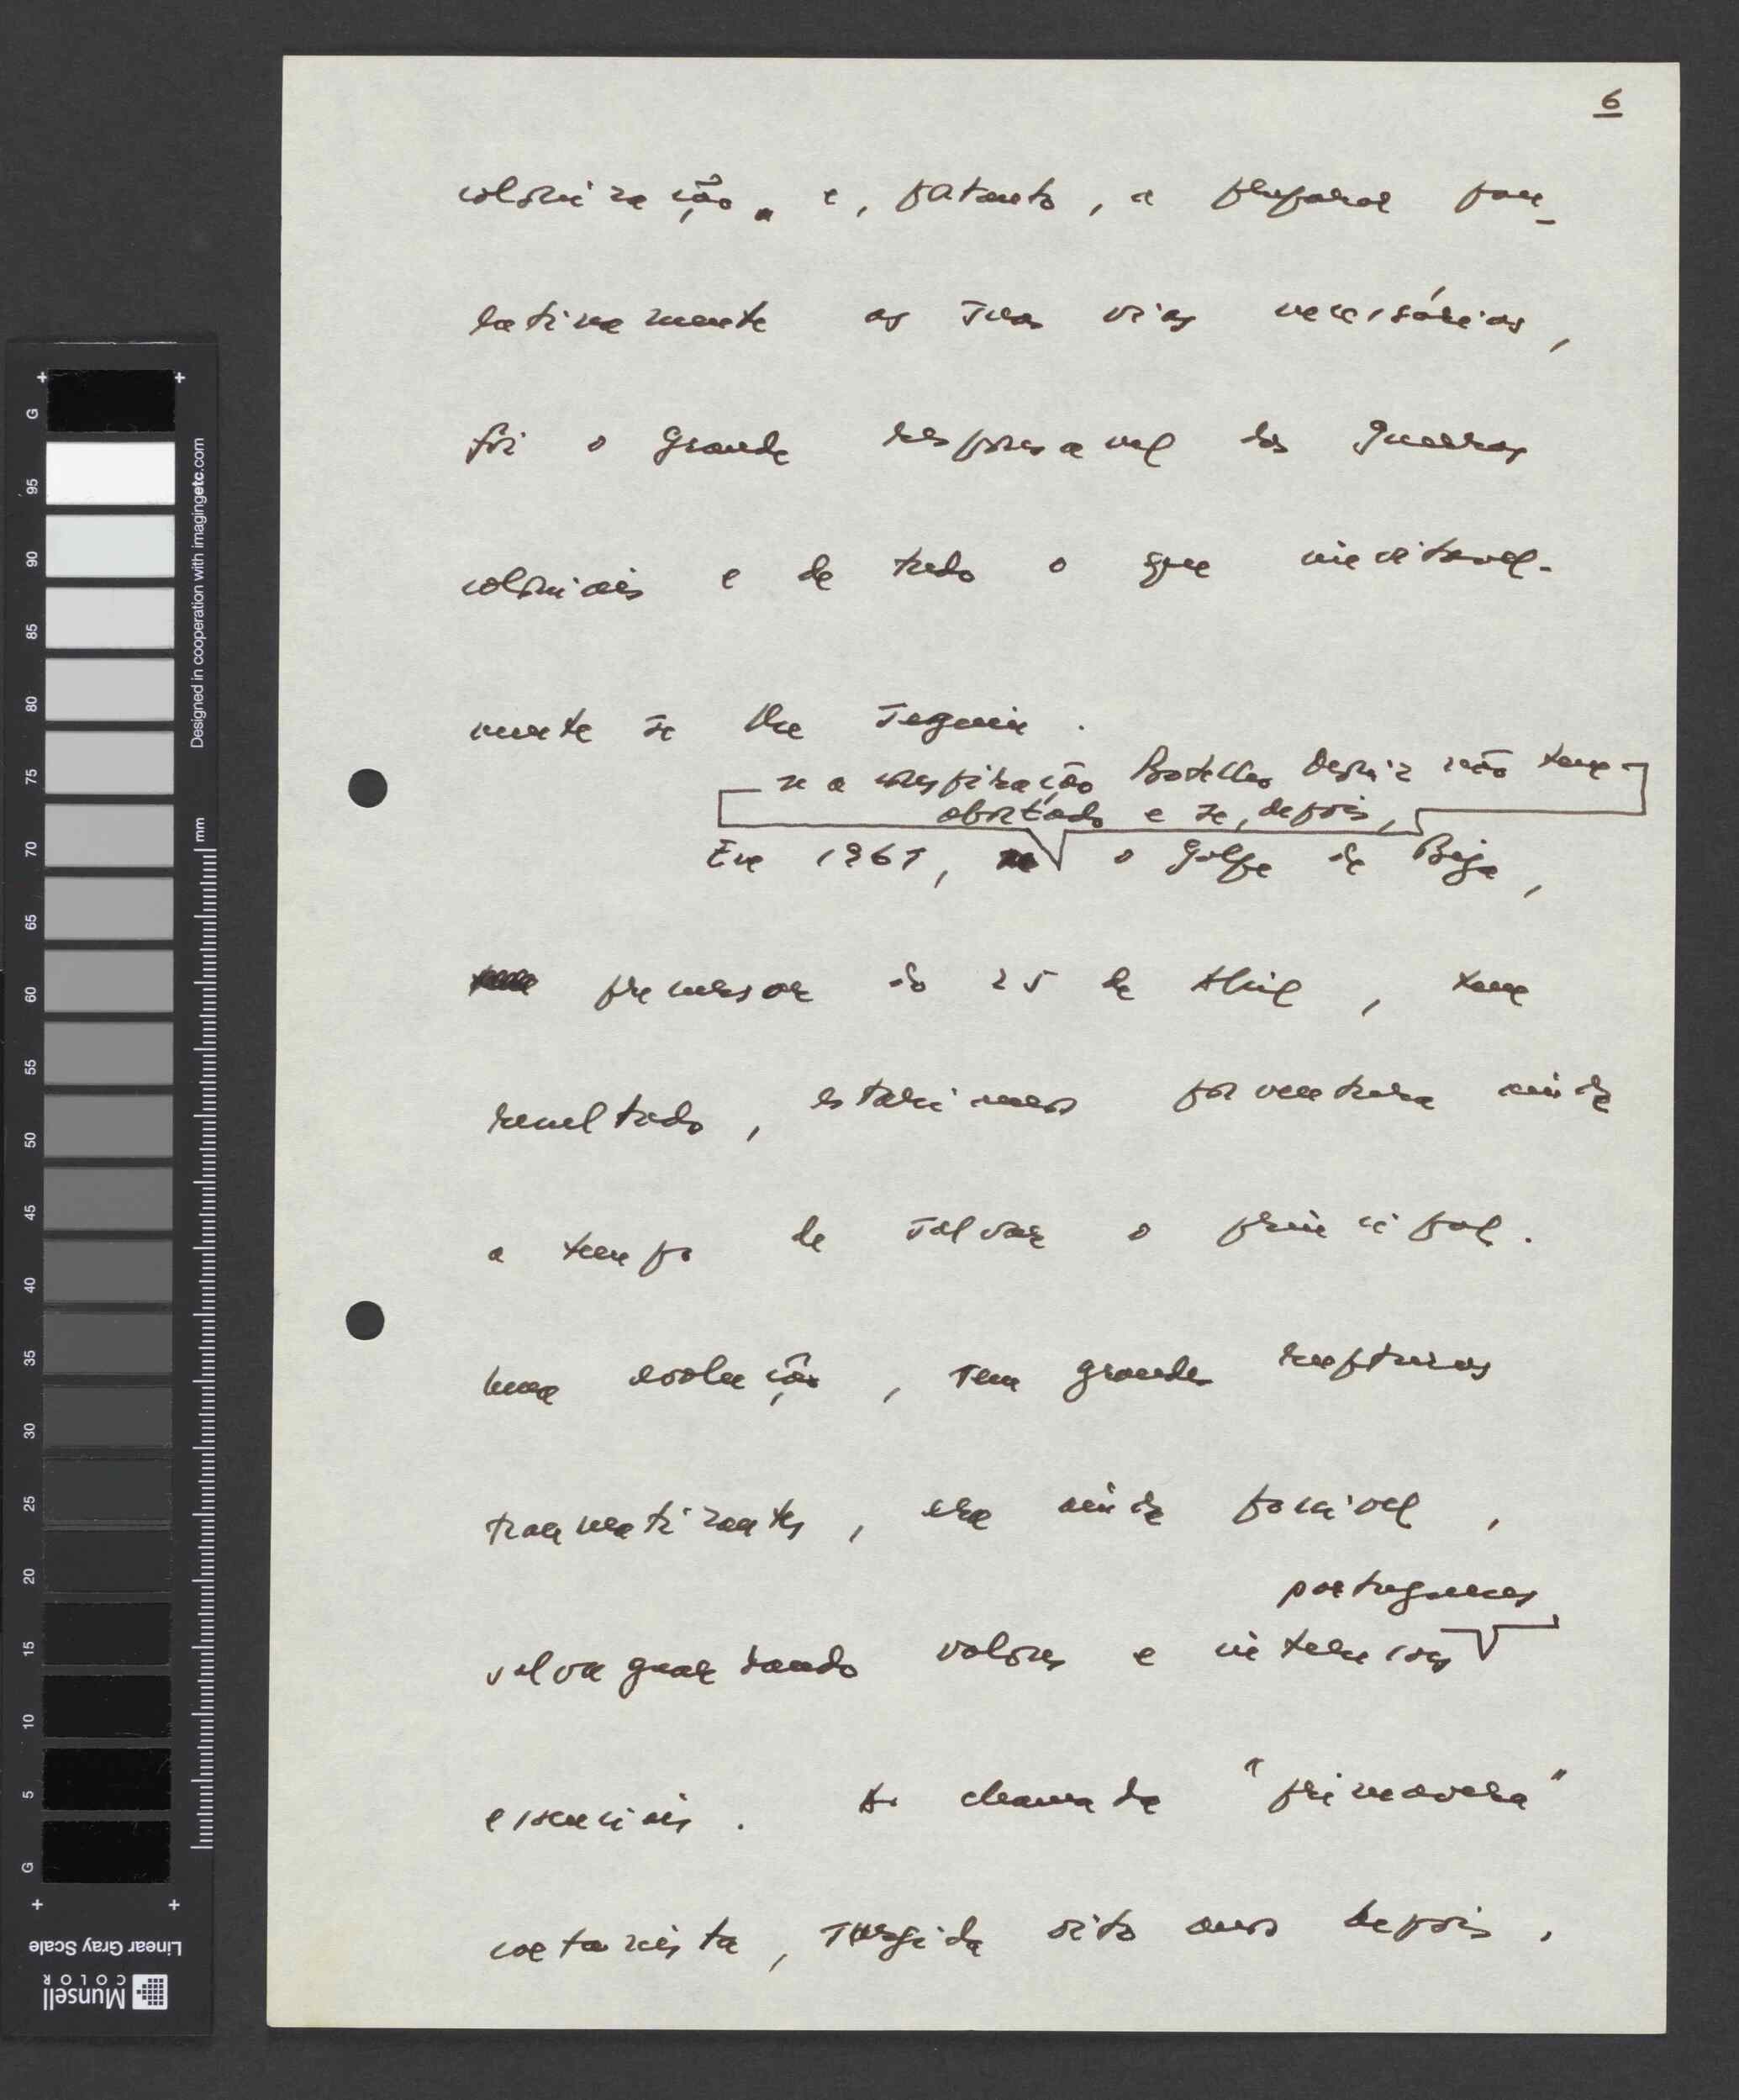 6
colonização " e, portanto, a preparar pau-
latinamente as suas vias necessárias,
foi o grande responsavel das guerras
coloniais e de tudo o que inevitavel-
mente se lhe seguiu.
se a conspiração Botelho Moniz não tem
abortado e se, depois,
Em 1961, o golpe de Beja,
precursor do 25 de Abril, tem
resultado, estariamos porventura ainda
a tempo de salvar o principal.
Uma evolução, sem grandes rupturas
traumatizantes, era ainda possivel,
portugueses
salvaguardando valores e interesses
essenciais. A chamada "primavera"
marcelista, surgida oito anos depois,
G
95
90
85
80
75
70
65
60
55
50
45
40
35
30
25
20
15
10
5
G
mm
Designed in cooperation with imagingetc.com
Linear Gray Scale
Munsell
COLOR